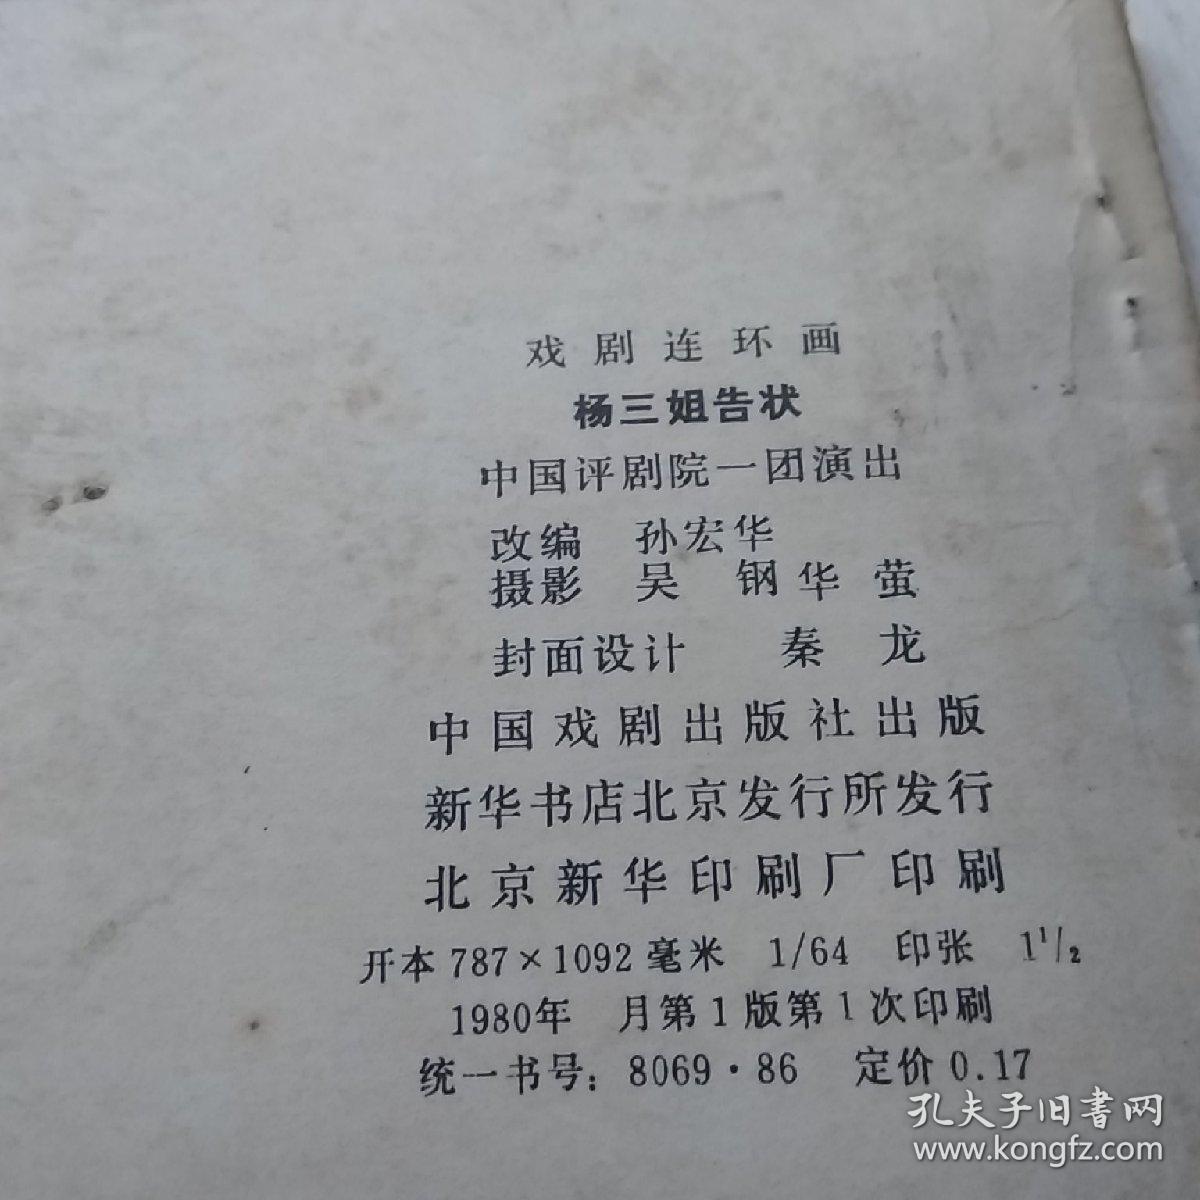 戏剧连环画
杨三姐告状
中国评剧院一团演出
改编 孙宏华
摄影 吴 钢 华 萤
封面设计 秦 龙
中国戏剧出版社出版
新华书店北京发行所发行
北京新华印刷厂印刷
开本 787×1092毫米 1/64 印张 1 1/2
1980年 月第1版第1次印刷
统一书号：8069·86 定价0.17
孔夫子旧书网
www.kongfz.com